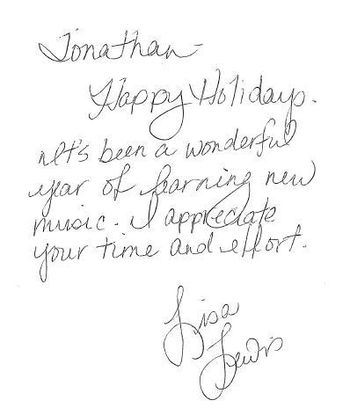 Jonathan-
Happy Holidays.
It's been a wonderful
year of learning new
music. I appreciate
your time and effort.
Lisa
Lewis